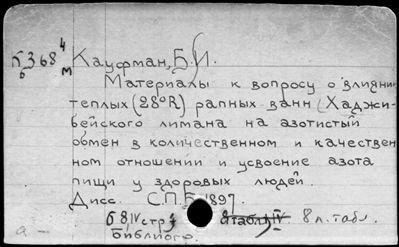 Б 368 4
б м
Кауфман, Б. И.
Материалы к вопросу о влиянии
теплых (28°R) рапных ванн (Хаджи-
бейского лимана на азотистый
обмен в количественном и качествен
ном отношении и усвоение азота
пищи у здоровых людей.
Дисс. С.П.Б. 1897
68, IV стр. 8 л. табл.
Библиогр.
а –